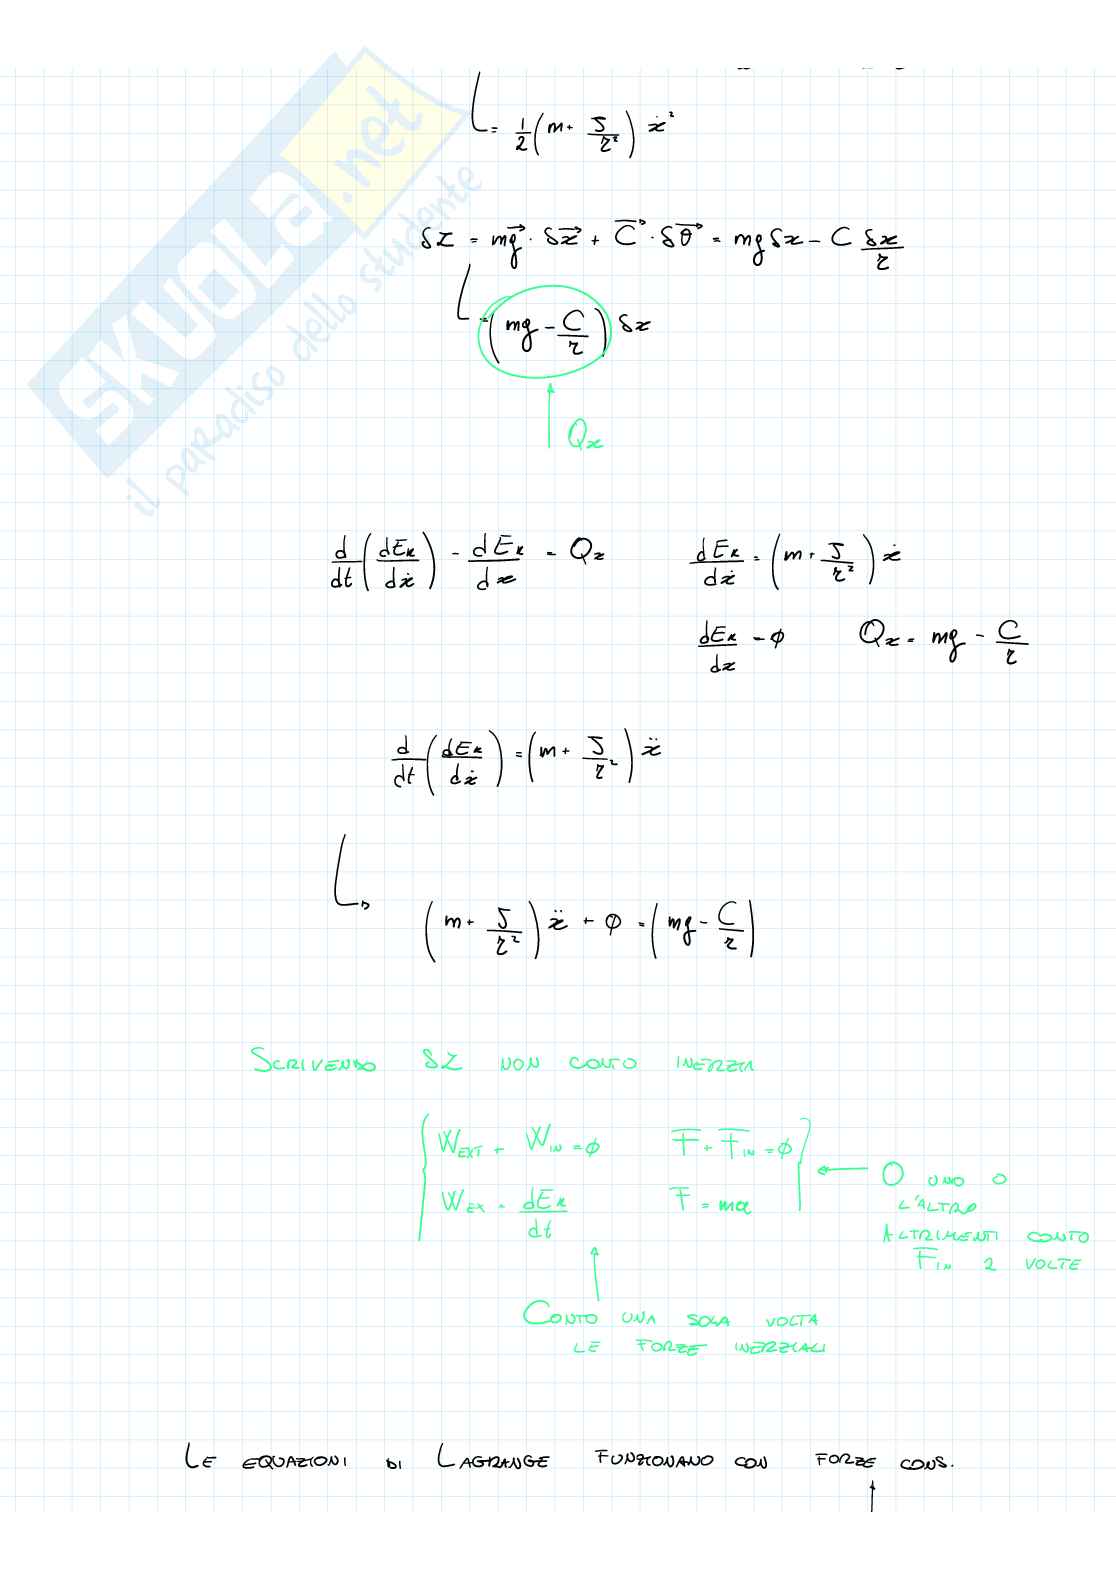 = 1/2 (m + J/r²) ẋ²
SKUOLA.net
il paradiso dello studente
δL = mg⃗ · δx⃗ + C⃗ · δθ⃗ = mgδx - C δx/r
= (mg - C/r) δx
Qx
d/dt (dEk/dẋ) - dEk/dx = Qx    dEk/dẋ = (m + J/r²) ẋ
dEk/dx = ϕ    Qx = mg - C/r
d/dt (dEk/dẋ) = (m + J/r²) ẍ
(m + J/r²) ẍ + ϕ = (mg - C/r)
SCRIVENDO δL NON CONTO INERZIA
WEXT + WIN = ϕ    F̄ + F̄IN = ϕ
WEX = dEk/dt    F̄ = ma
O UNO O
L'ALTRO
ALTRIMENTI CONTO
F̄IN 2 VOLTE
CONTO UNA SOLA VOLTA
LE FORZE INERZIALI
LE EQUAZIONI DI LAGRANGE FUNZIONANO CON FORZE CONS.